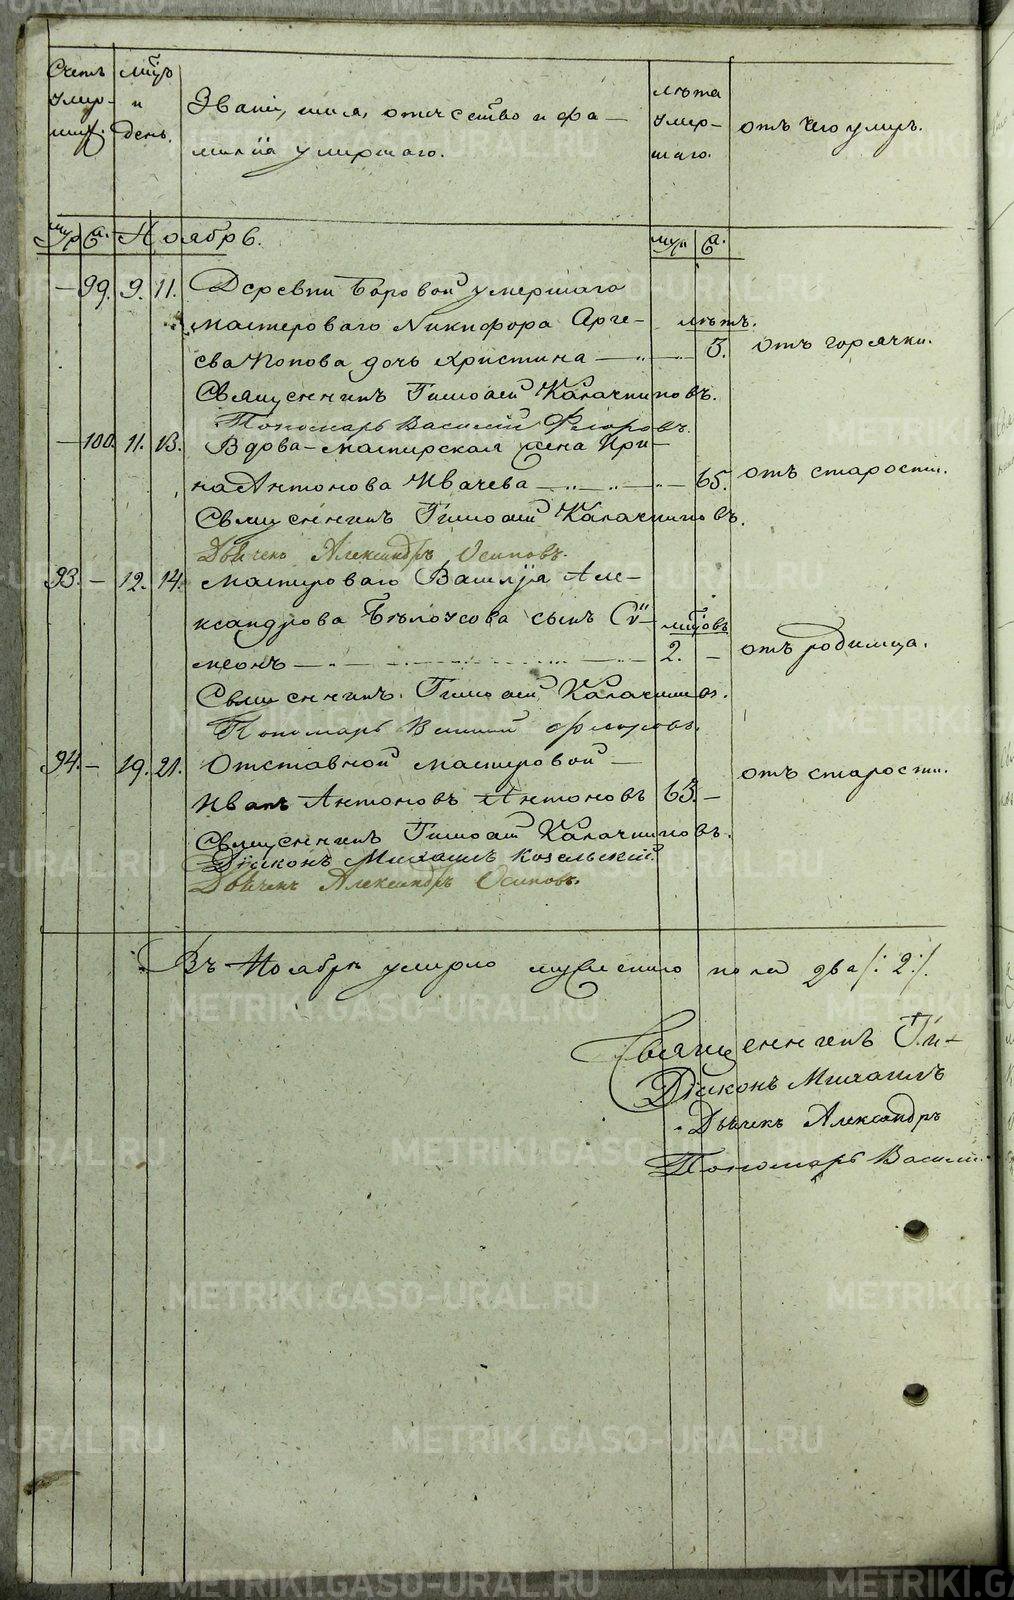 Счетъ умер- шихъ.
Мѣсяцъ и день.
Званіе, имя, отчество и фа-
милія умершаго.
Лѣта умер- шаго.
отъ чего умеръ.
муж. ж. Ноябрь. муж. ж.
— 99. 9. 11. Деревни Боровой умершаго
мастероваго Никифора Арте- лѣтъ.
ева Попова дочь Христина — „ — 3. отъ горячки.
Священникъ Тимоѳей
Пономарь Василій Флоровъ.
— 100. 11. 13. Вдова-мастерская жена Ири-
на Антонова Ивачева — „ — „ — 65. отъ старости.
Священникъ Тимоѳей
Дьячекъ Александръ Осиповъ.
93. — 12. 14. Мастероваго Василія Але-
ксандрова Бѣлоусова сынъ Сѵ- мѣсяцовъ
меонъ — 2. — отъ родимца.
Священникъ Тимоѳей
Пономарь Василій Флоровъ.
94. — 19. 21. Отставной мастеровой — отъ старости.
Иванъ Антоновъ Антоновъ 63. —
Священникъ Тимоѳей
Діаконъ Михаилъ Козельскій.
Дьячекъ Александръ Осиповъ.
Въ Ноябрѣ умерло мужескаго пола два /: 2 :/.
Священникъ Ти-
Діаконъ Михаилъ
Дьячекъ Александръ
Пономарь Василій
METRIKI.GASO-URAL.RU